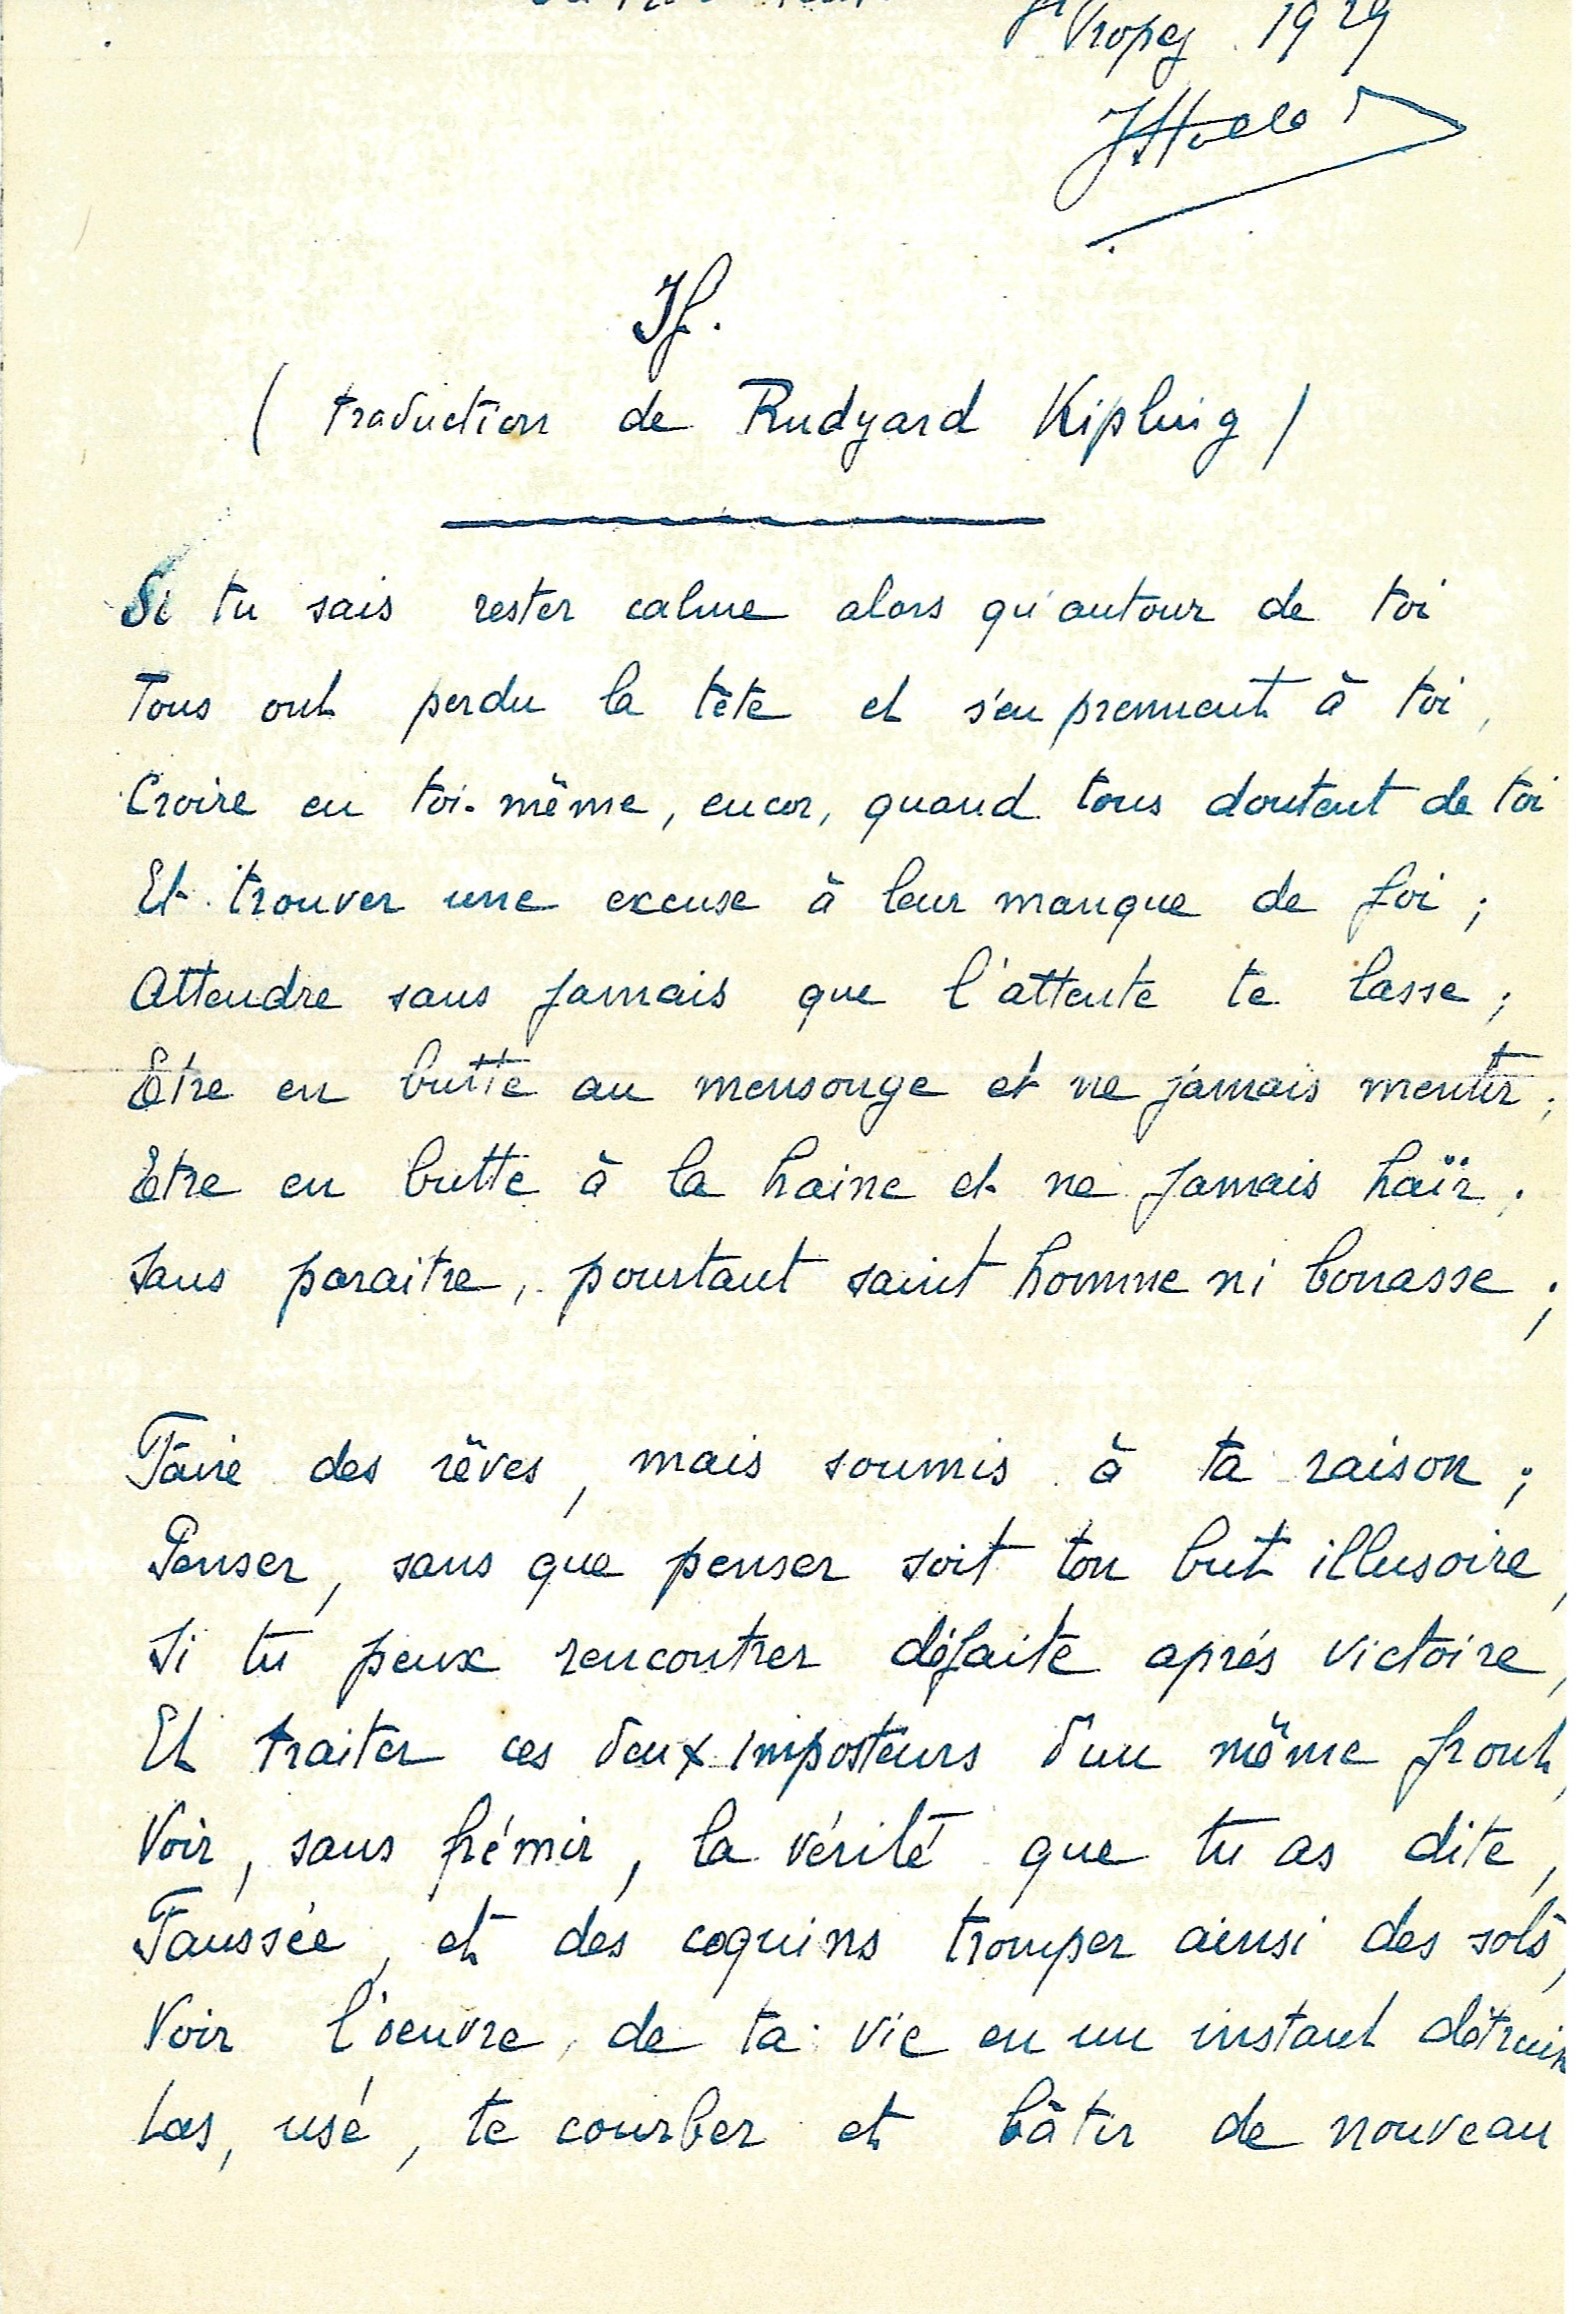 St Tropez 1929
If.
( traduction de Rudyard Kipling )
Si tu sais rester calme alors qu'autour de toi
Tous ont perdu la tête et s'en prennent à toi,
Croire en toi-même, encor, quand tous doutent de toi
Et trouver une excuse à leur manque de foi ;
Attendre sans jamais que l'attente te lasse ;
Etre en butte au mensonge et ne jamais mentir ;
Etre en butte à la haine et ne jamais haïr ;
Sans paraitre, pourtant saint homme ni bonasse ;
Faire des rêves, mais soumis à ta raison ;
Penser, sans que penser soit ton but illusoire,
Si tu peux rencontrer défaite aprés victoire,
Et traiter ces deux imposteurs d'un même front,
Voir, sans frémir, la vérité que tu as dite,
Faussée, et des coquins tromper ainsi des sots,
Voir l'oeuvre, de ta vie en un instant détruite
Las, usé, te courber et bâtir de nouveau